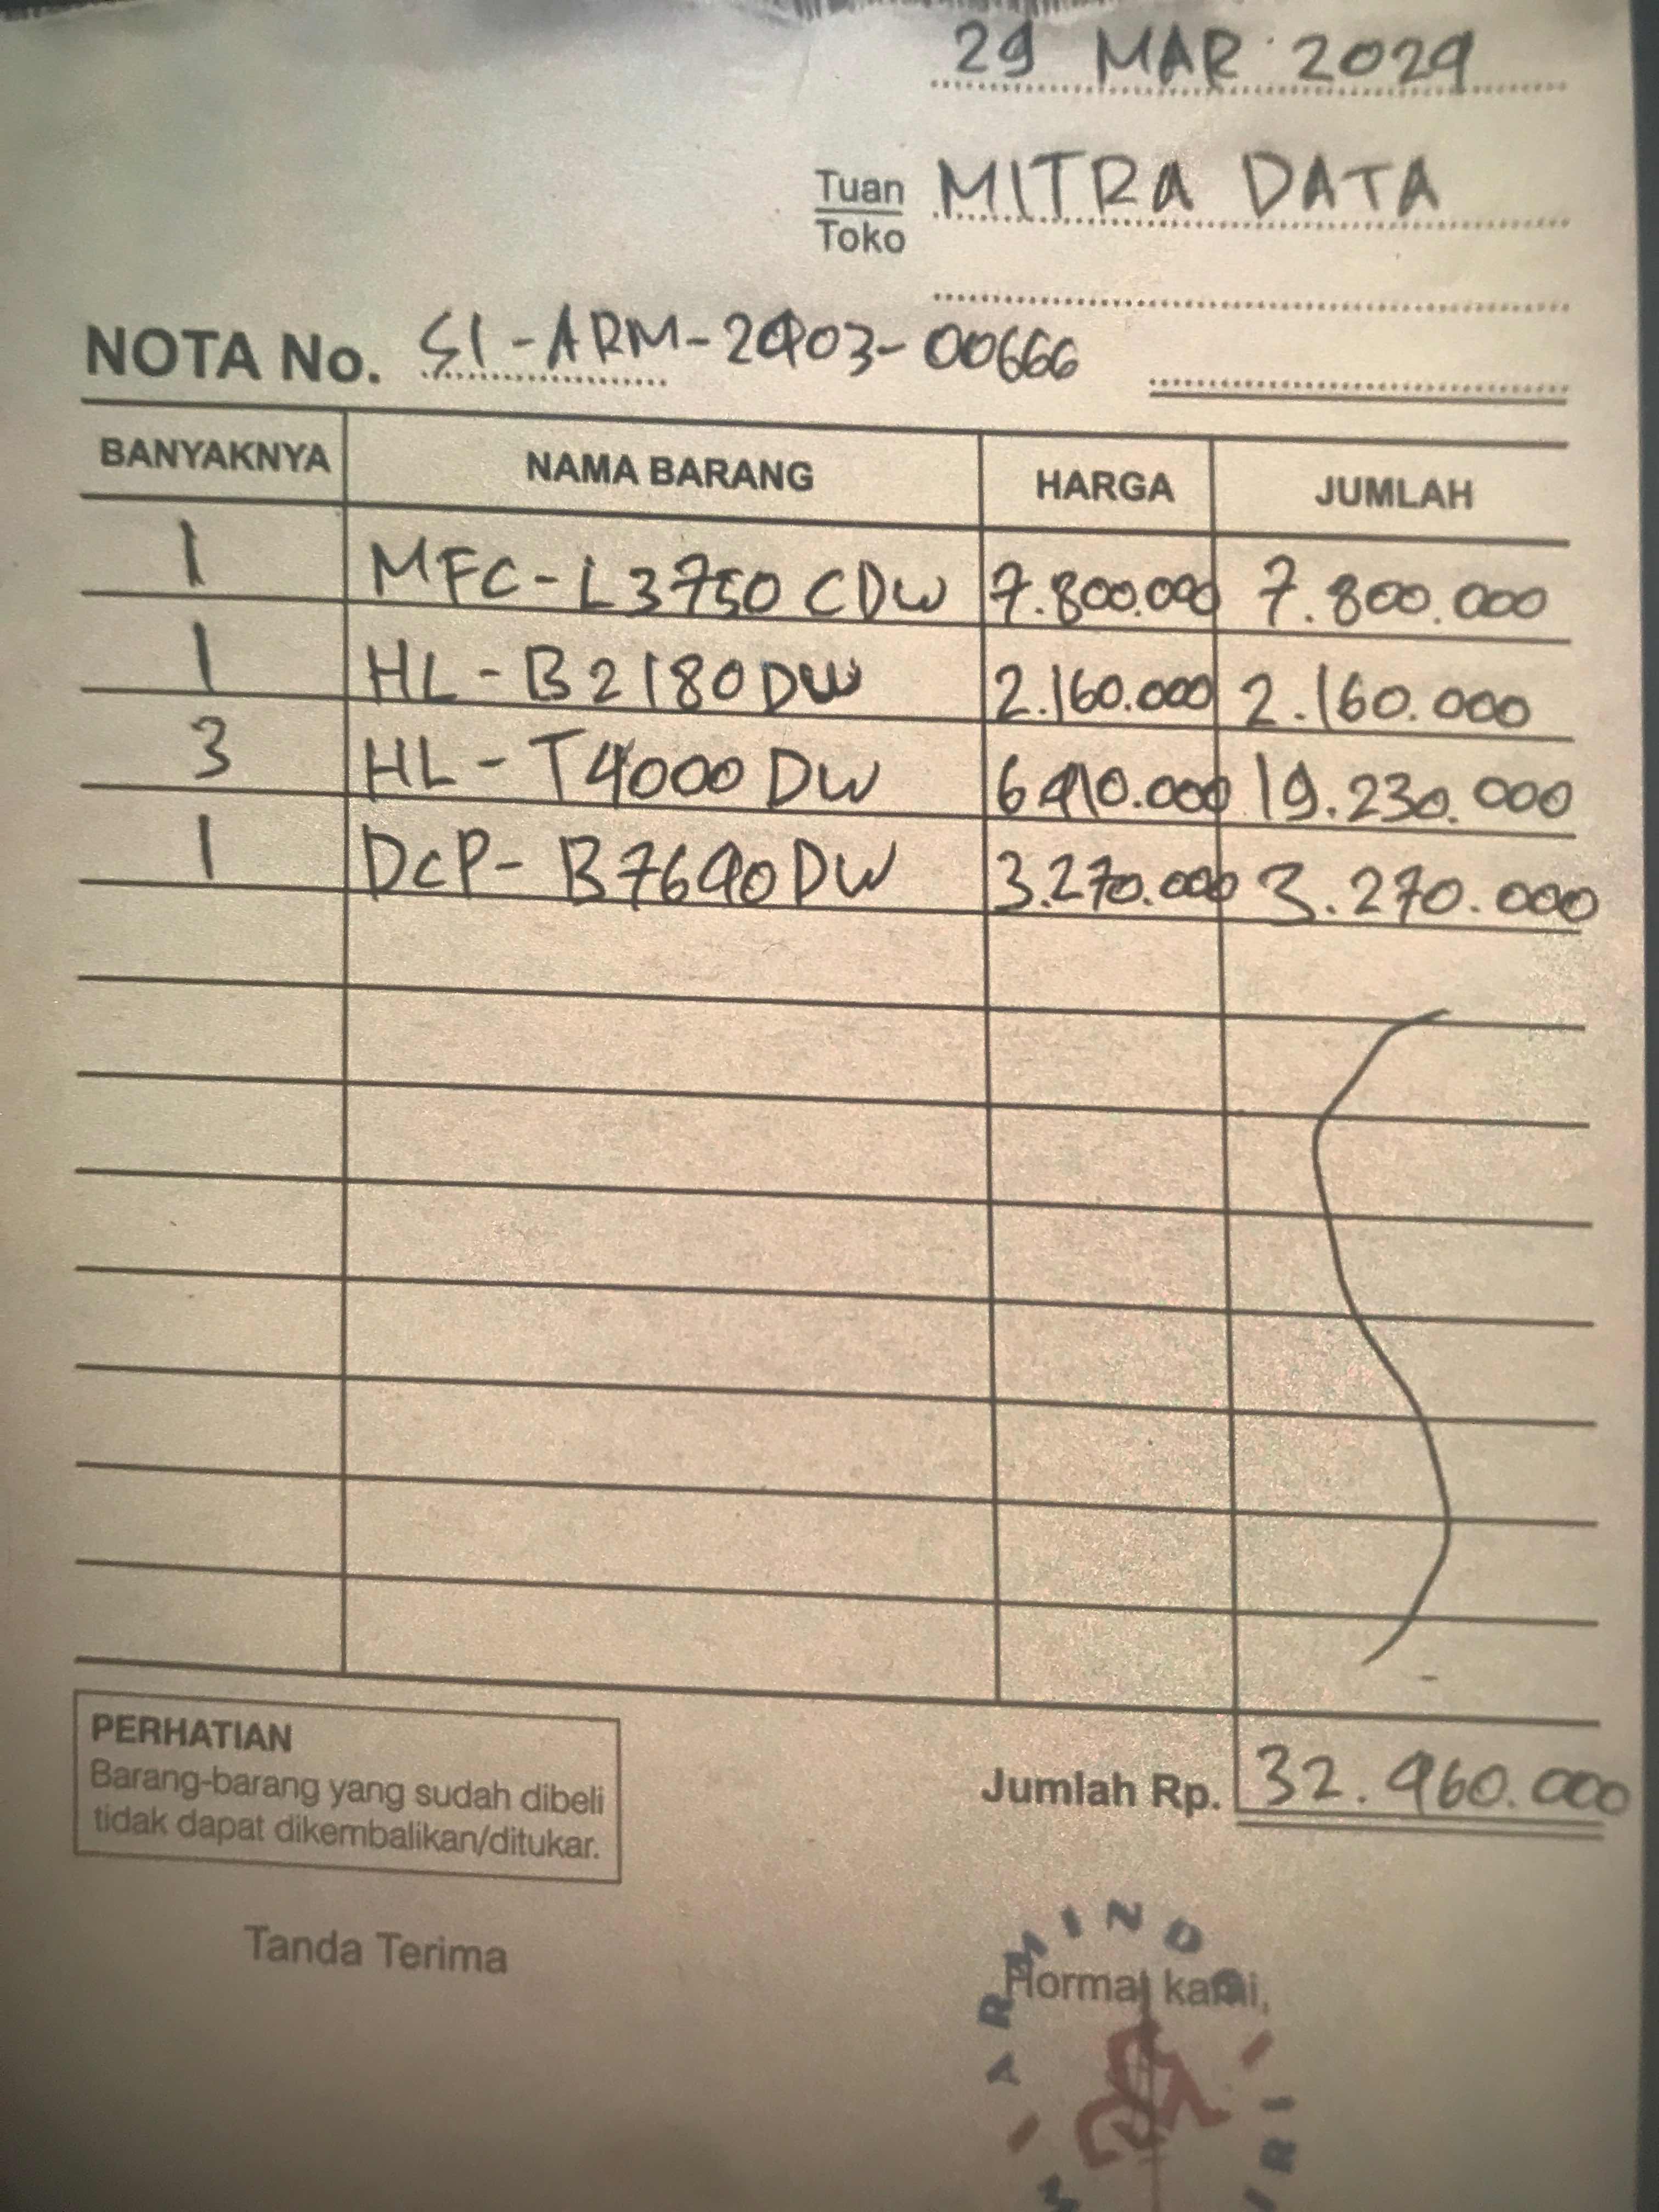 29 MAR 2024
Tuan MITRA DATA
Toko
NOTA No. SI-ARM-2403-00666
BANYAKNYA NAMA BARANG HARGA JUMLAH
1 MFC-L3750 CDW 7.800.000 7.800.000
1 HL-B2180DW 2.160.000 2.160.000
3 HL-T4000 DW 6410.000 19.230.000
1 DCP-B7640DW 3.270.000 3.270.000
PERHATIAN
Barang-barang yang sudah dibeli
tidak dapat dikembalikan/ditukar.
Jumlah Rp. 32.460.000
Tanda Terima
Hormat kami,
ARMINDO